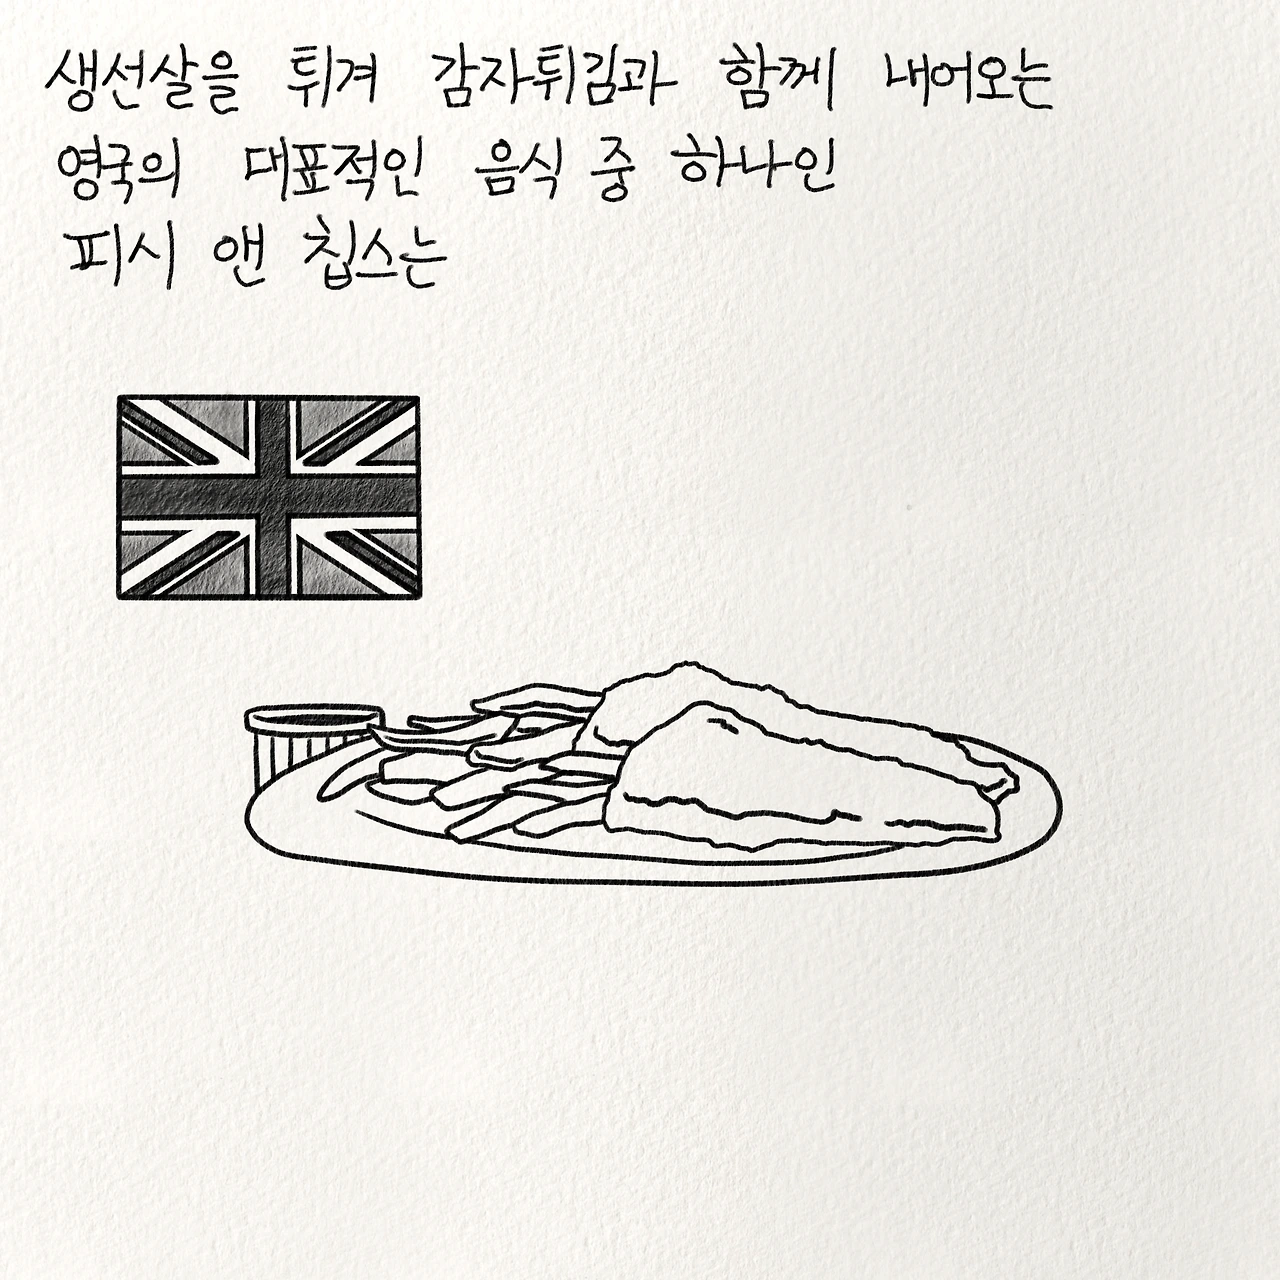 생선살을 튀겨 감자튀김과 함께 내어오는
영국의 대표적인 음식 중 하나인
피시 앤 칩스는